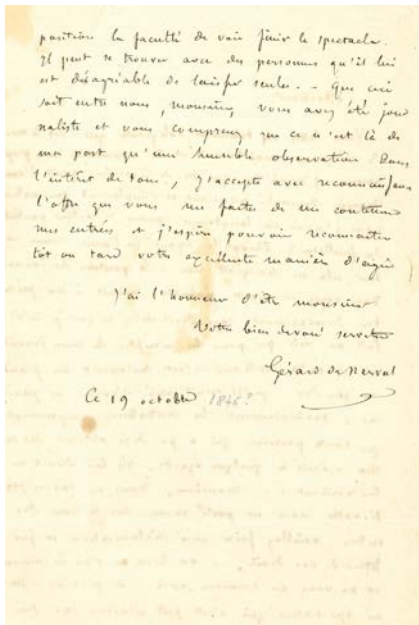 position la faculté de voir finir le spectacle.
Il peut se trouver avec des personnes qu'il lui
est désagréable de laisser seules. – Que ceci
soit entre nous, monsieur, vous avez été jour
naliste et vous comprenez que ce n'est là de
ma part qu'une humble observation dans
l'intérêt de tous, j'accepte avec reconnaissance
l'offre que vous me faites de me continuer
mes entrées et j'espère pouvoir reconnaître
tôt ou tard votre excellente manière d'agir
J'ai l'honneur d'être monsieur
Votre bien dévoué serviteur
Gérard de Nerval
Ce 19 octobre 1846?